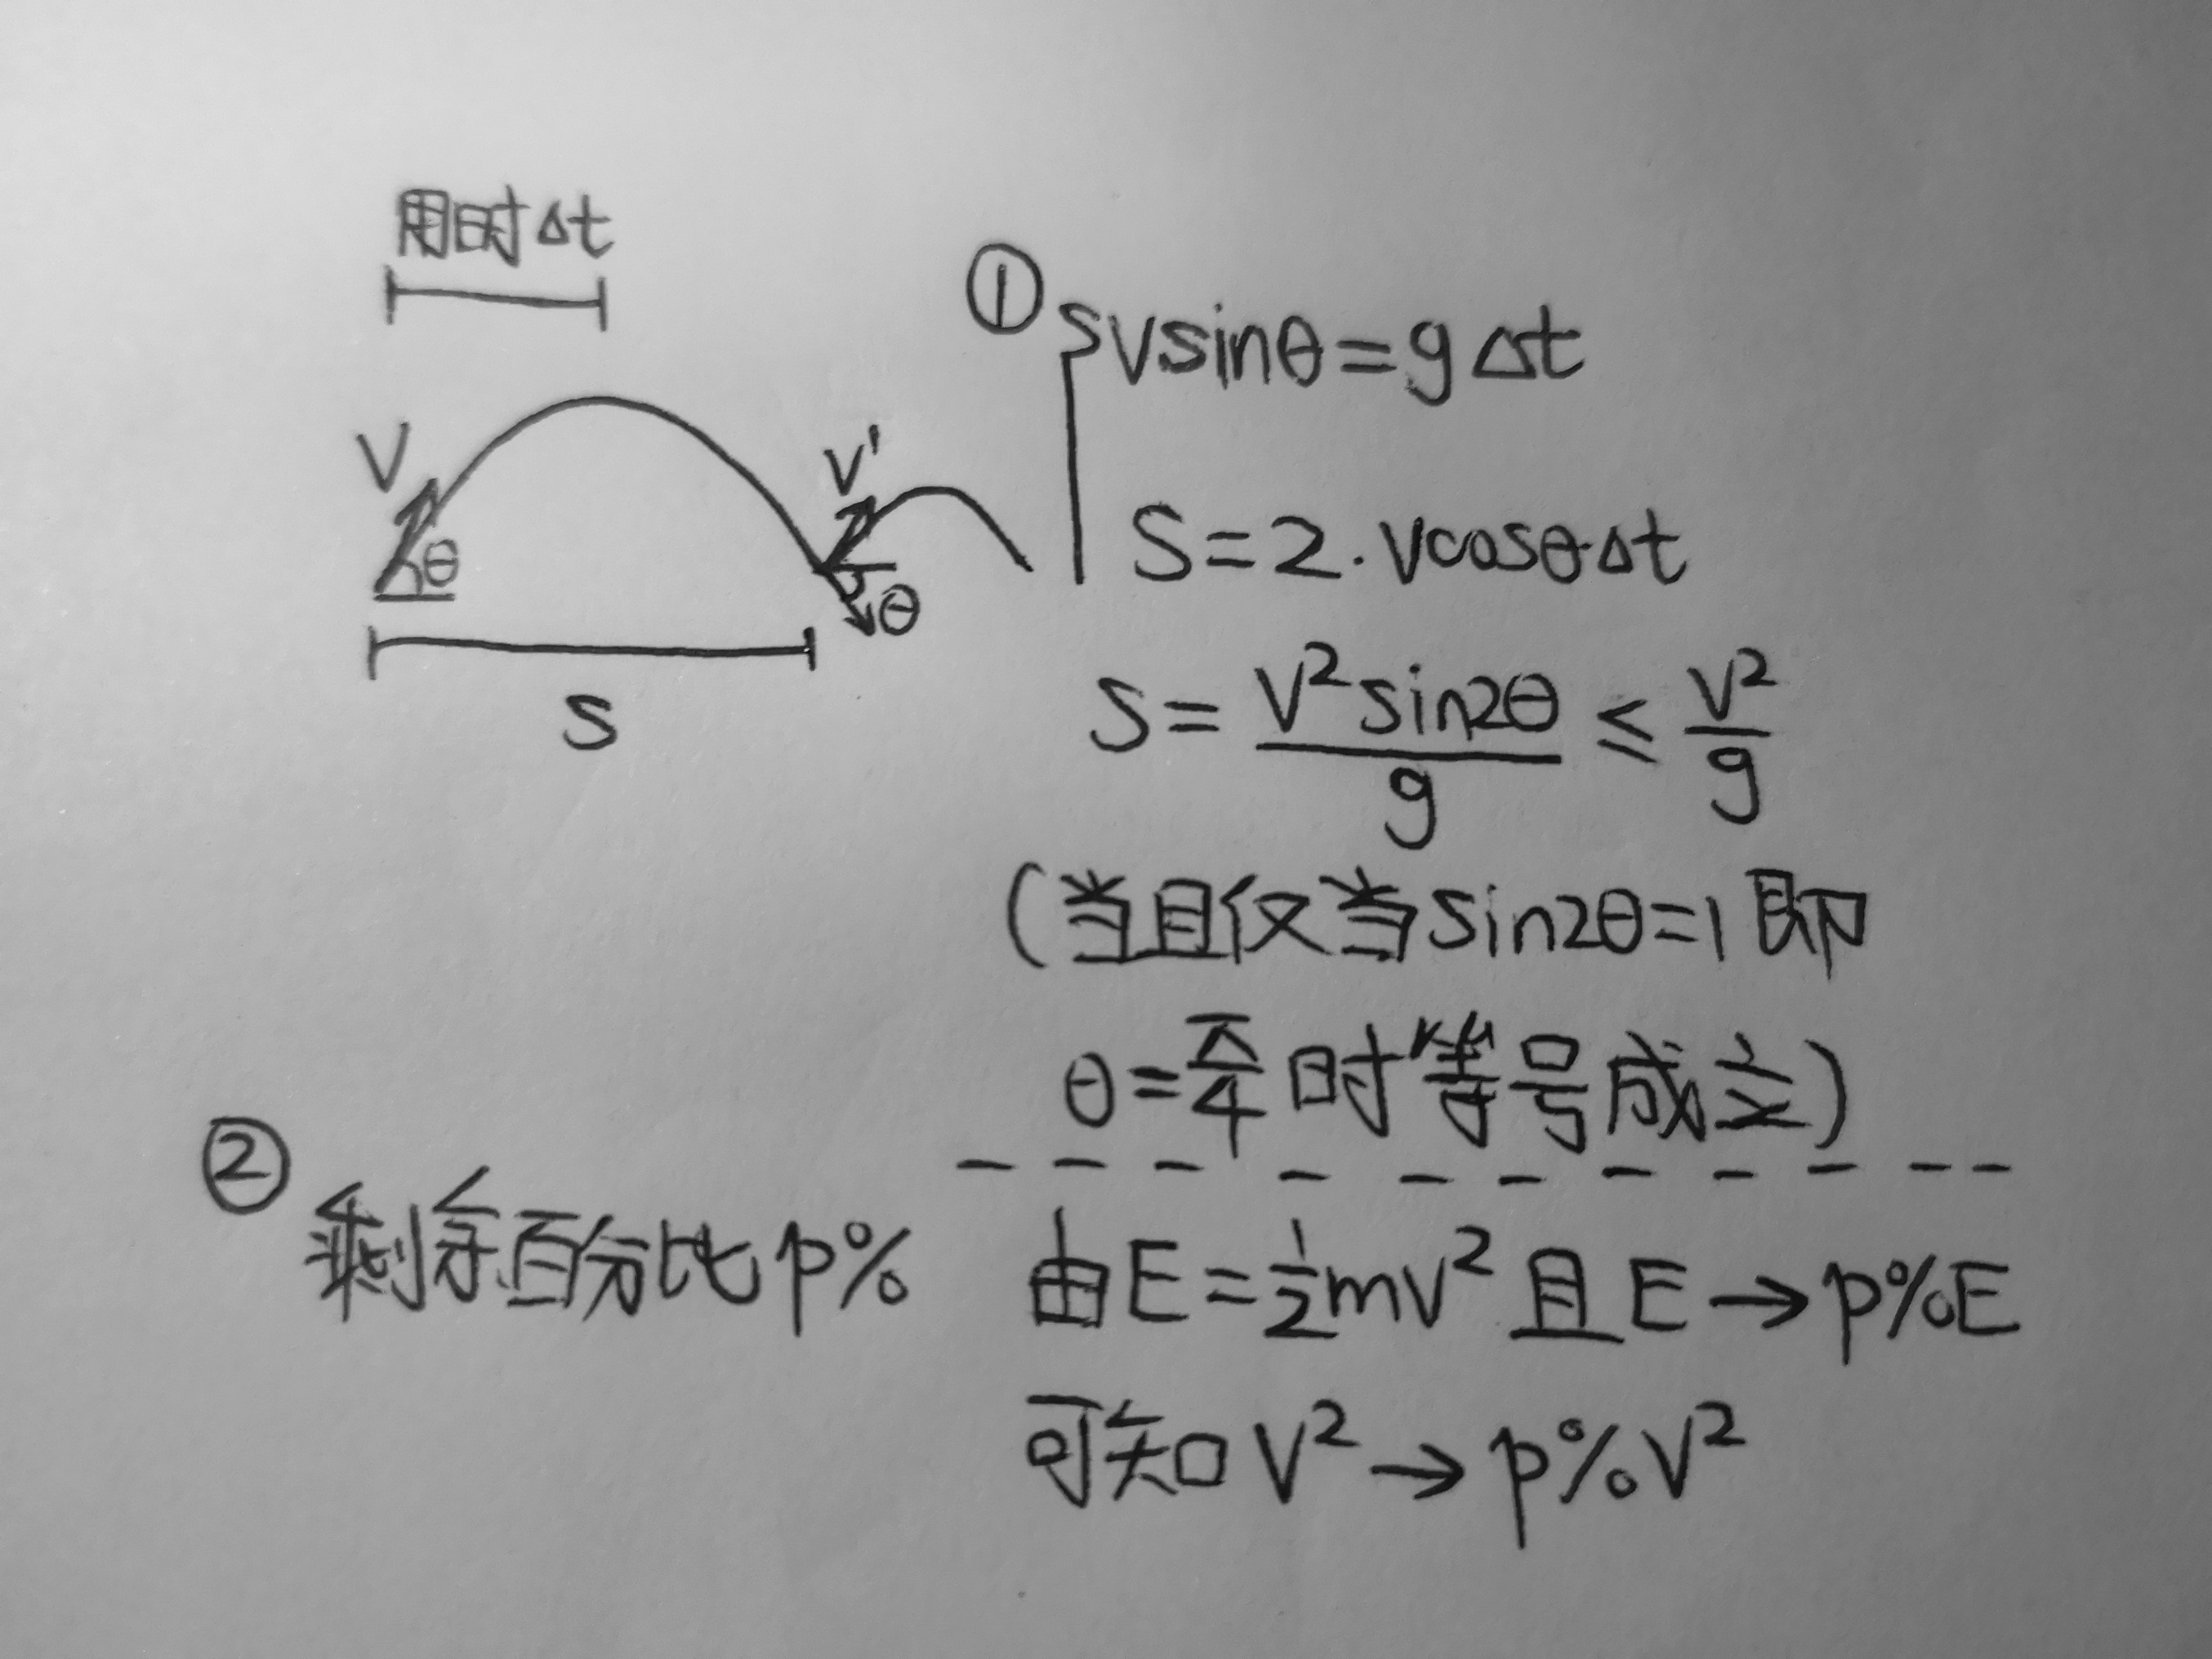 用时Δt
V
θ
V'
θ
S
①
Vsinθ=gΔt
S=2·Vcosθ·Δt
S=V²sin2θ/g≤V²/g
(当且仅当sin2θ=1即
θ=π/4时等号成立)
②
剩余百分比p%
由E=½mV²且E→p%E
可知V²→p%V²